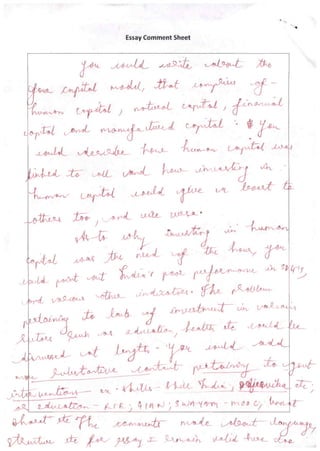 Essay Comment Sheet
You could write about the
four capital model, that comprises of -
human capital, natural capital, financial
capital and manufactured capital. You
could describe how human capital was
linked to all and how investing in
human capital could give a boost to
others too, and vice versa.
As to why investing in human
capital was the need of the hour, you
could point out India's poor performance in
and various other indicators. The problem
pertaining to lack of investment in various
sectors such as education, health etc could be
discussed at length. You could add
more substantive content pertaining to govt
interventions in - skills - Skill India, etc.
education - RTE, GIAN, SWAYAM - MOOC,
Bharat etc. The comments made about language,
structure etc for essay I remain valid here too